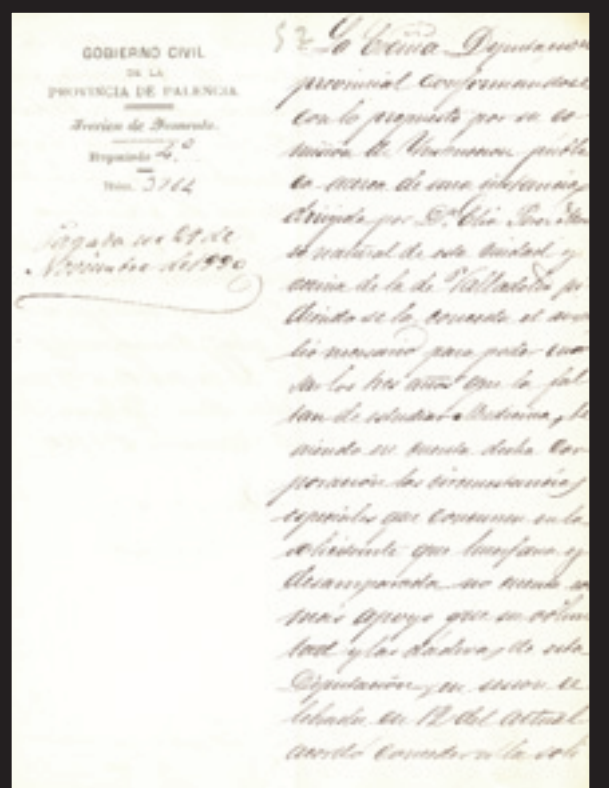 GOBIERNO CIVIL
DE LA
PROVINCIA DE PALENCIA.
Seccion de Fomento.
Negociado 4.º
Núm. 3764
Pagada en 21 de
Noviembre de 1890
La Excma Diputacion
provincial conformandose
con lo propuesto por su co-
mision de Instruccion públi
ca acerca de una instancia
dirigida por D.ª
natural de esta Ciudad y
de la de Valladolid pi
diendo se la conceda el auxi
lio necesario para poder cur
sar los tres años que la fal
tan de estudiar Medicina, te
niendo en cuenta dicha Cor
poración las circunstancias
especiales que concurren en la
solicitante que huerfana y
desamparada no cuenta con
mas apoyo que su volun
tad y las dadivas de esta
Diputación, en sesion ce
lebrada en 12 del actual
acordó conceder a la soli